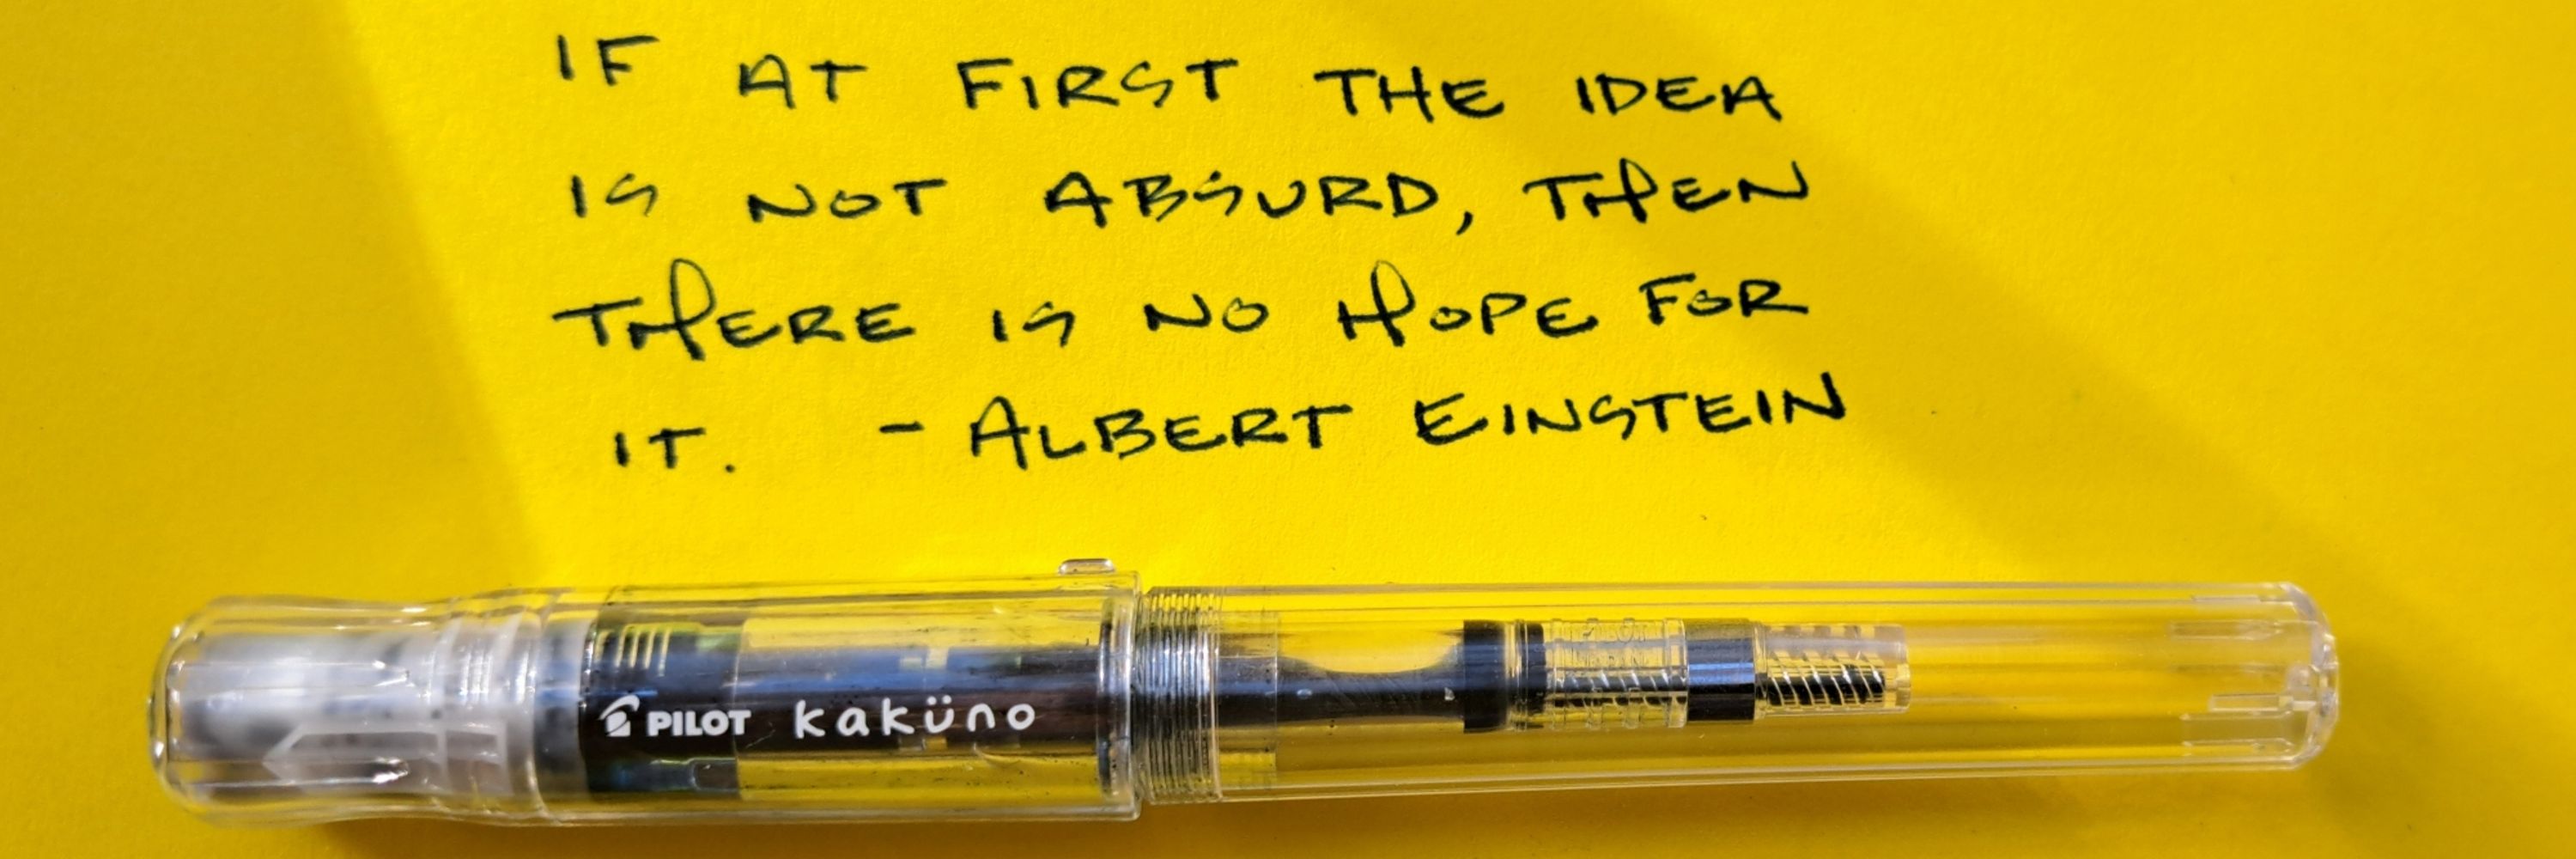 IF AT FIRST THE IDEA
IS NOT ABSURD, THEN
THERE IS NO HOPE FOR
IT. - ALBERT EINSTEIN
PILOT kaküno